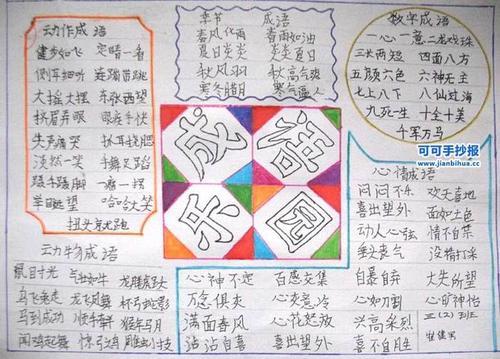 动作成语
健步如飞 定睛一看
侧耳细听
大摇大摆 东张西望
挤眉弄眼 眼疾手快
失声痛哭 抓耳挠腮
淡然一笑 手舞足蹈
蹑手蹑脚 一瘸一拐
举目眺望 哈哈大笑
扭头就跑
季节 成语
春风化雨 春雨如油
夏日炎炎 炎炎夏日
秋风 秋高气爽
寒冬腊月 寒气逼人
数字成语
一心一意 二龙戏珠
三长两短 四面八方
五颜六色 六神无主
七上八下 八仙过海
九死一生 十全十美
千军万马
可可手抄报
www.jianbihua.cc
成语
乐园
心情成语
闷闷不乐 欢天喜地
喜出望外 面如土色
动人心弦 情不自禁
垂头丧气 没精打采
自暴自弃 大失所望
心如刀割 心旷神怡
兴高采烈 五(2)班
喜不自胜
动物成语
鼠目寸光 气壮如牛 龙腾虎跃
乌飞兔走 龙飞凤舞 杯弓蛇影
马到成功 猴年马月
闻鸡起舞 惊弓之鸟 雕虫小技
心神不定 百感交集
万念俱灰 心灰意冷
满面春风 心花怒放
沾沾自喜 喜出望外